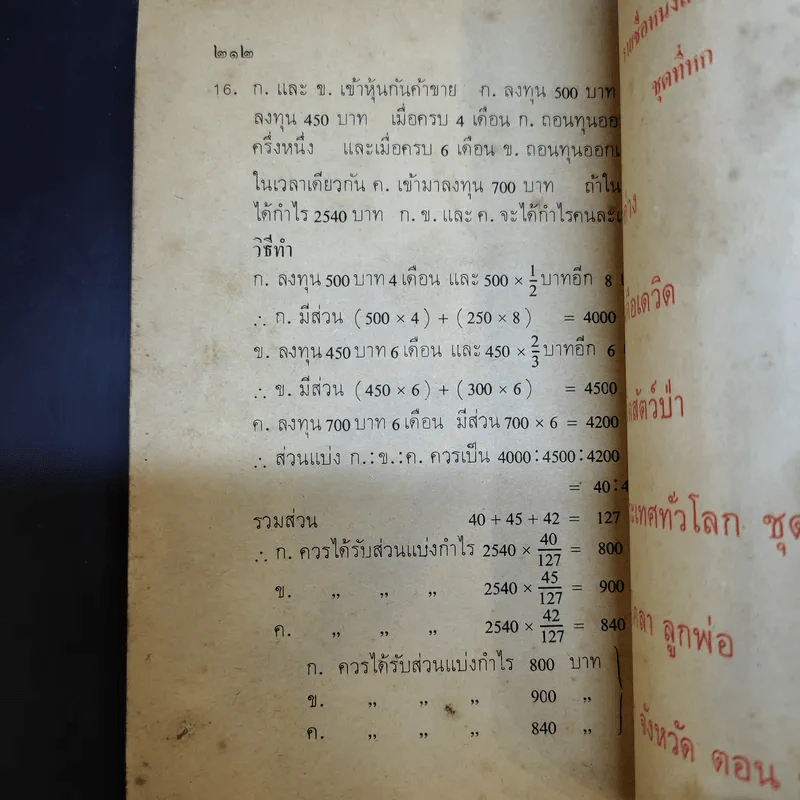 ๒๑๒
16. ก. และ ข. เข้าหุ้นกันค้าขาย ก. ลงทุน 500 บาท
ลงทุน 450 บาท เมื่อครบ 4 เดือน ก. ถอนทุนออ
ครึ่งหนึ่ง และเมื่อครบ 6 เดือน ข. ถอนทุนออก
ในเวลาเดียวกัน ค. เข้ามาลงทุน 700 บาท ถ้าใน
ได้กำไร 2540 บาท ก. ข. และ ค. จะได้กำไรคนละ
วิธีทำ
ก. ลงทุน 500 บาท 4 เดือน และ 500 × 1/2 บาทอีก 8
∴ ก. มีส่วน (500 × 4) + (250 × 8) = 4000
ข. ลงทุน 450 บาท 6 เดือน และ 450 × 2/3 บาทอีก 6
∴ ข. มีส่วน (450 × 6) + (300 × 6) = 4500
ค. ลงทุน 700 บาท 6 เดือน มีส่วน 700 × 6 = 4200
∴ ส่วนแบ่ง ก.:ข.:ค. ควรเป็น 4000:4500:4200
= 40:4
รวมส่วน 40 + 45 + 42 = 127
∴ ก. ควรได้รับส่วนแบ่งกำไร 2540 × 40/127 = 800
ข. ,, ,, ,, 2540 × 45/127 = 900
ค. ,, ,, ,, 2540 × 42/127 = 840
ก. ควรได้รับส่วนแบ่งกำไร 800 บาท
ข. ,, ,, ,, 900 ,,
ค. ,, ,, ,, 840 ,,
ชุดที่หก
สัตว์ป่า
ทั่วโลก ชุด
ลูกพ่อ
จังหวัด ตอน